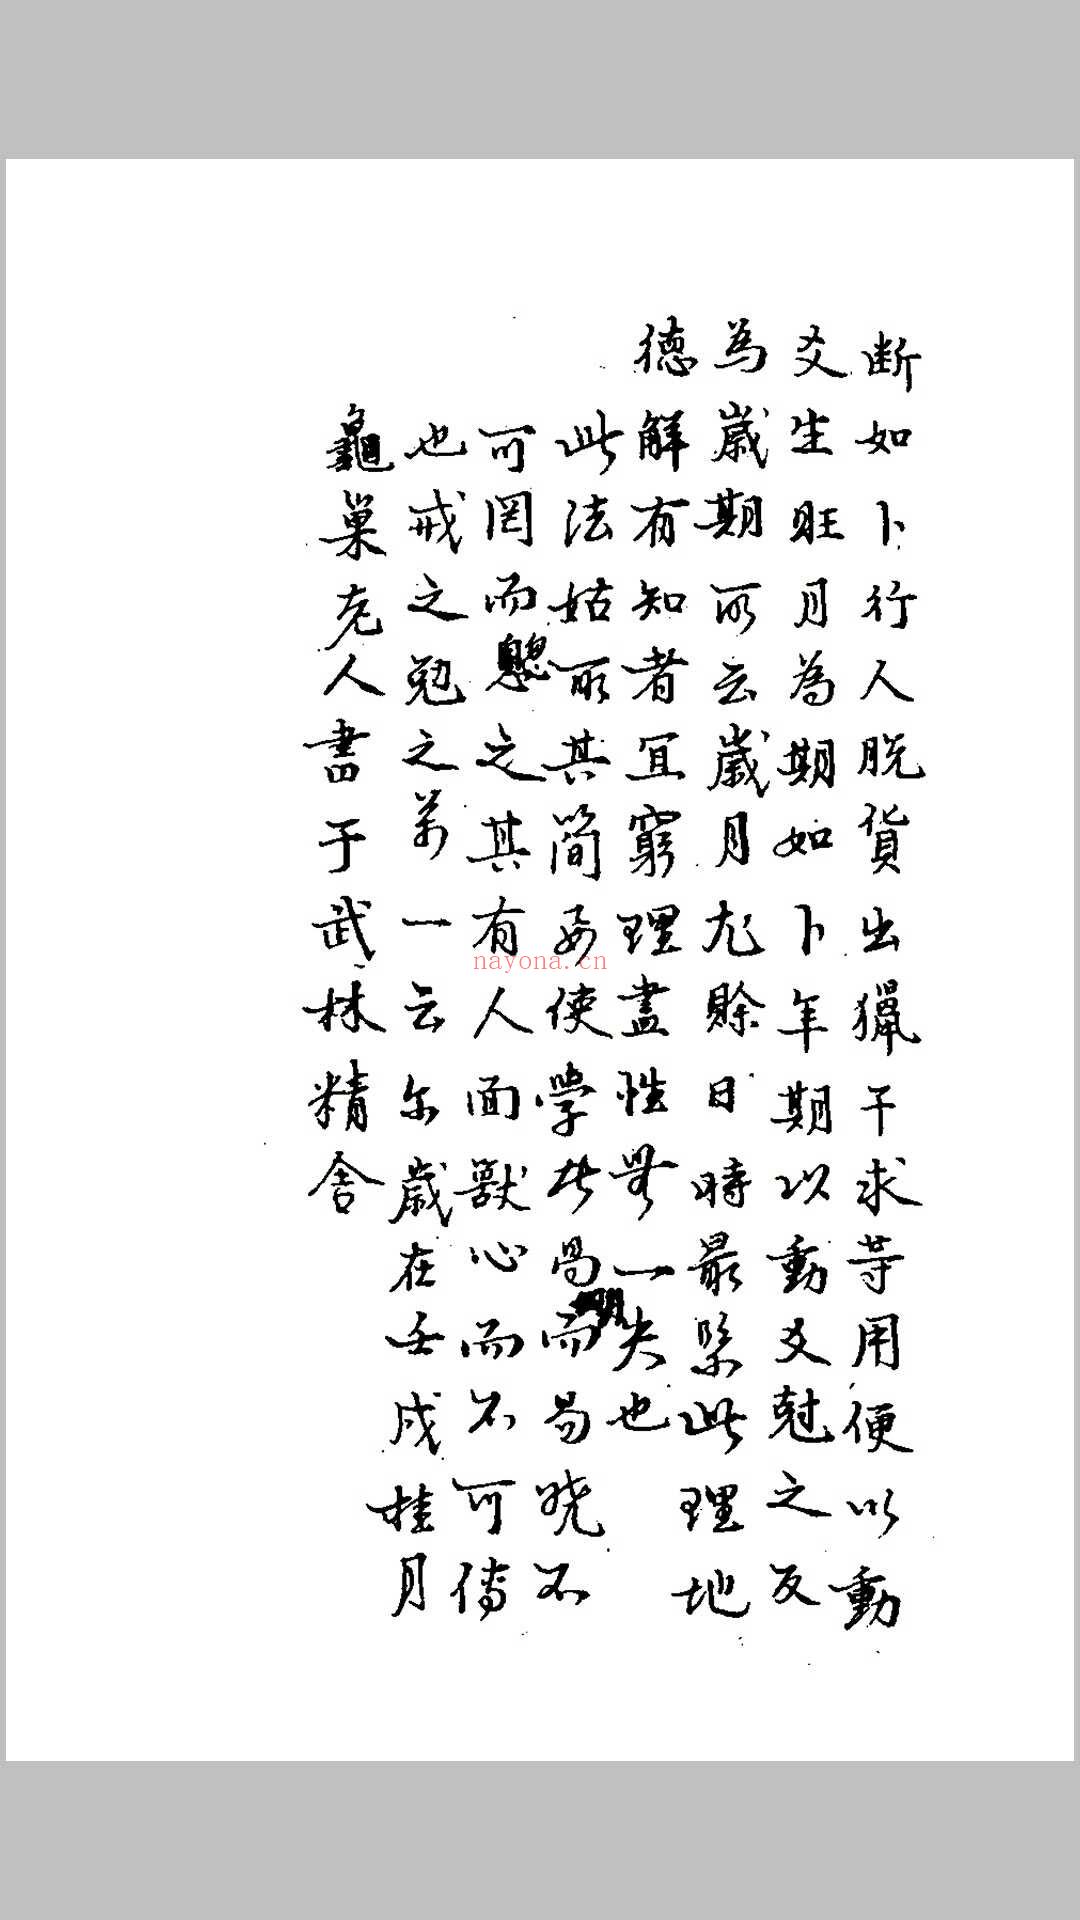 断如卜行人脱貨出獵干求等用便以動
爻生旺月為期如卜年期以動爻尅之反
為歲期所云歲月尤賒日時最緊此理地
德解有知者宜窮理盡性無一失也
此法姑所其簡要使學者易而易晓不
可罔而之其有人面獸心而不可傳
也戒之勉之萬一云尔歲在壬戌桂月
龜巢老人書于武林精舍
nayona.cn